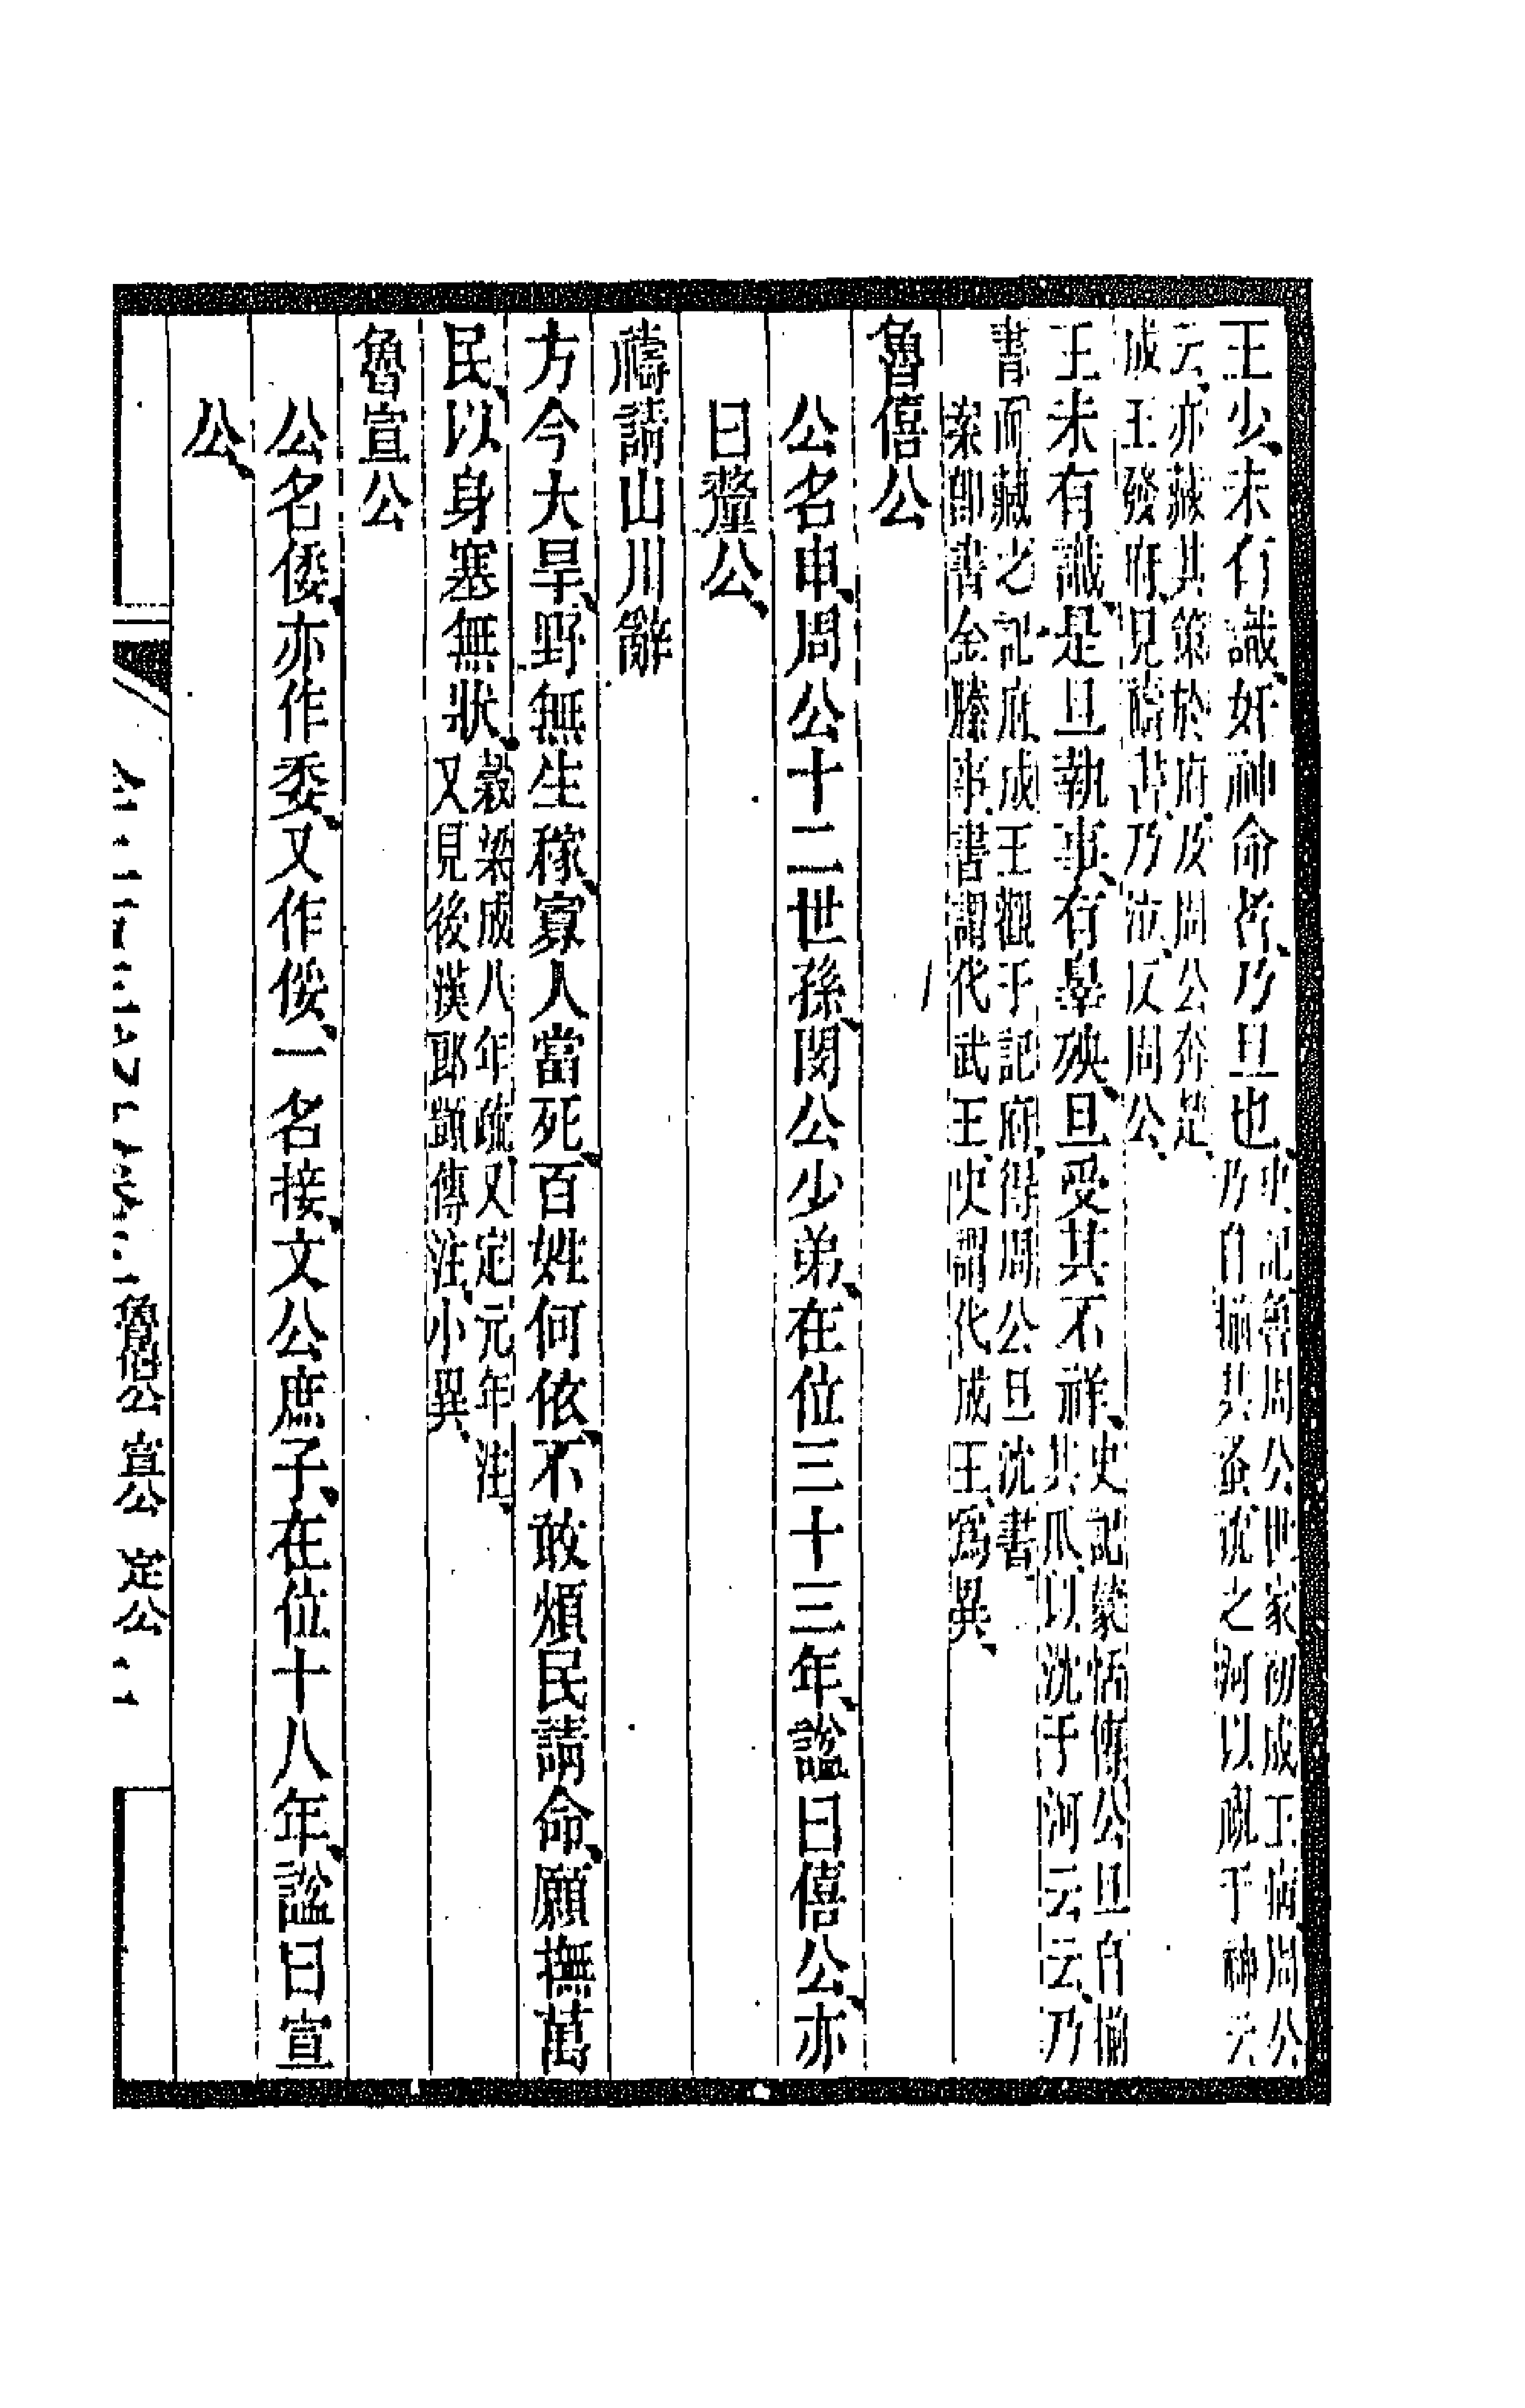 王少、未有識、奸神命者、乃旦也、史記魯周公世家、初成王病、周公
乃自揃其蚤、沈之河、以祝于神云
云、亦藏其策於府、及周公奔楚、
成王發府、見禱書、乃泣、反周公、
王未有識、是旦執事、有辠殃、旦受其不祥、史記蒙恬傳、公旦自揃
其爪、以沈于河云云、乃
書而藏之記府、成王觀于記府、得周公旦沈書、
案卽書金縢事、書謂代武王、史謂代成王、爲異、
魯僖公
公名申、周公十二世孫、閔公少弟、在位三十三年、謚曰僖公、亦
曰釐公、
禱請山川辭
方今大旱、野無生稼、寡人當死、百姓何依、不敢煩民請命、願撫萬
民、以身塞無狀、穀梁成八年疏、又定元年注、
又見後漢郎顗傳注、小異、
魯宣公
公名倭、亦作委、又作俀、一名接、文公庶子、在位十八年、謚曰宣
公、
魯僖公 宣公 定公